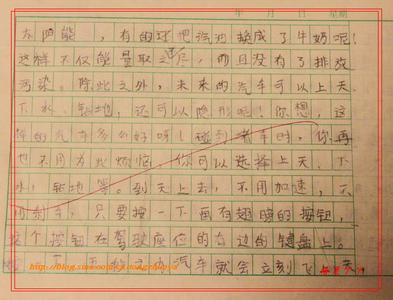 年 月 日 星期
太阳能 ，有的还把汽油换成了牛奶呢！
这样不仅能量取之 尽，而且没有了排放
污染。除此之外，未来的汽车可以上天、
下水、钻地，还可以隐形呢！你想，这
样的汽车多么好呀！碰到堵车时，你再
也不用为此烦恼。你可以选择上天、下
水、钻地等。到天上去，不用加速，不
用 ，只要按一下画有翅膀的按钮，
这个按钮在驾驶座位的右边的键盘上。
汽车就会立刻飞